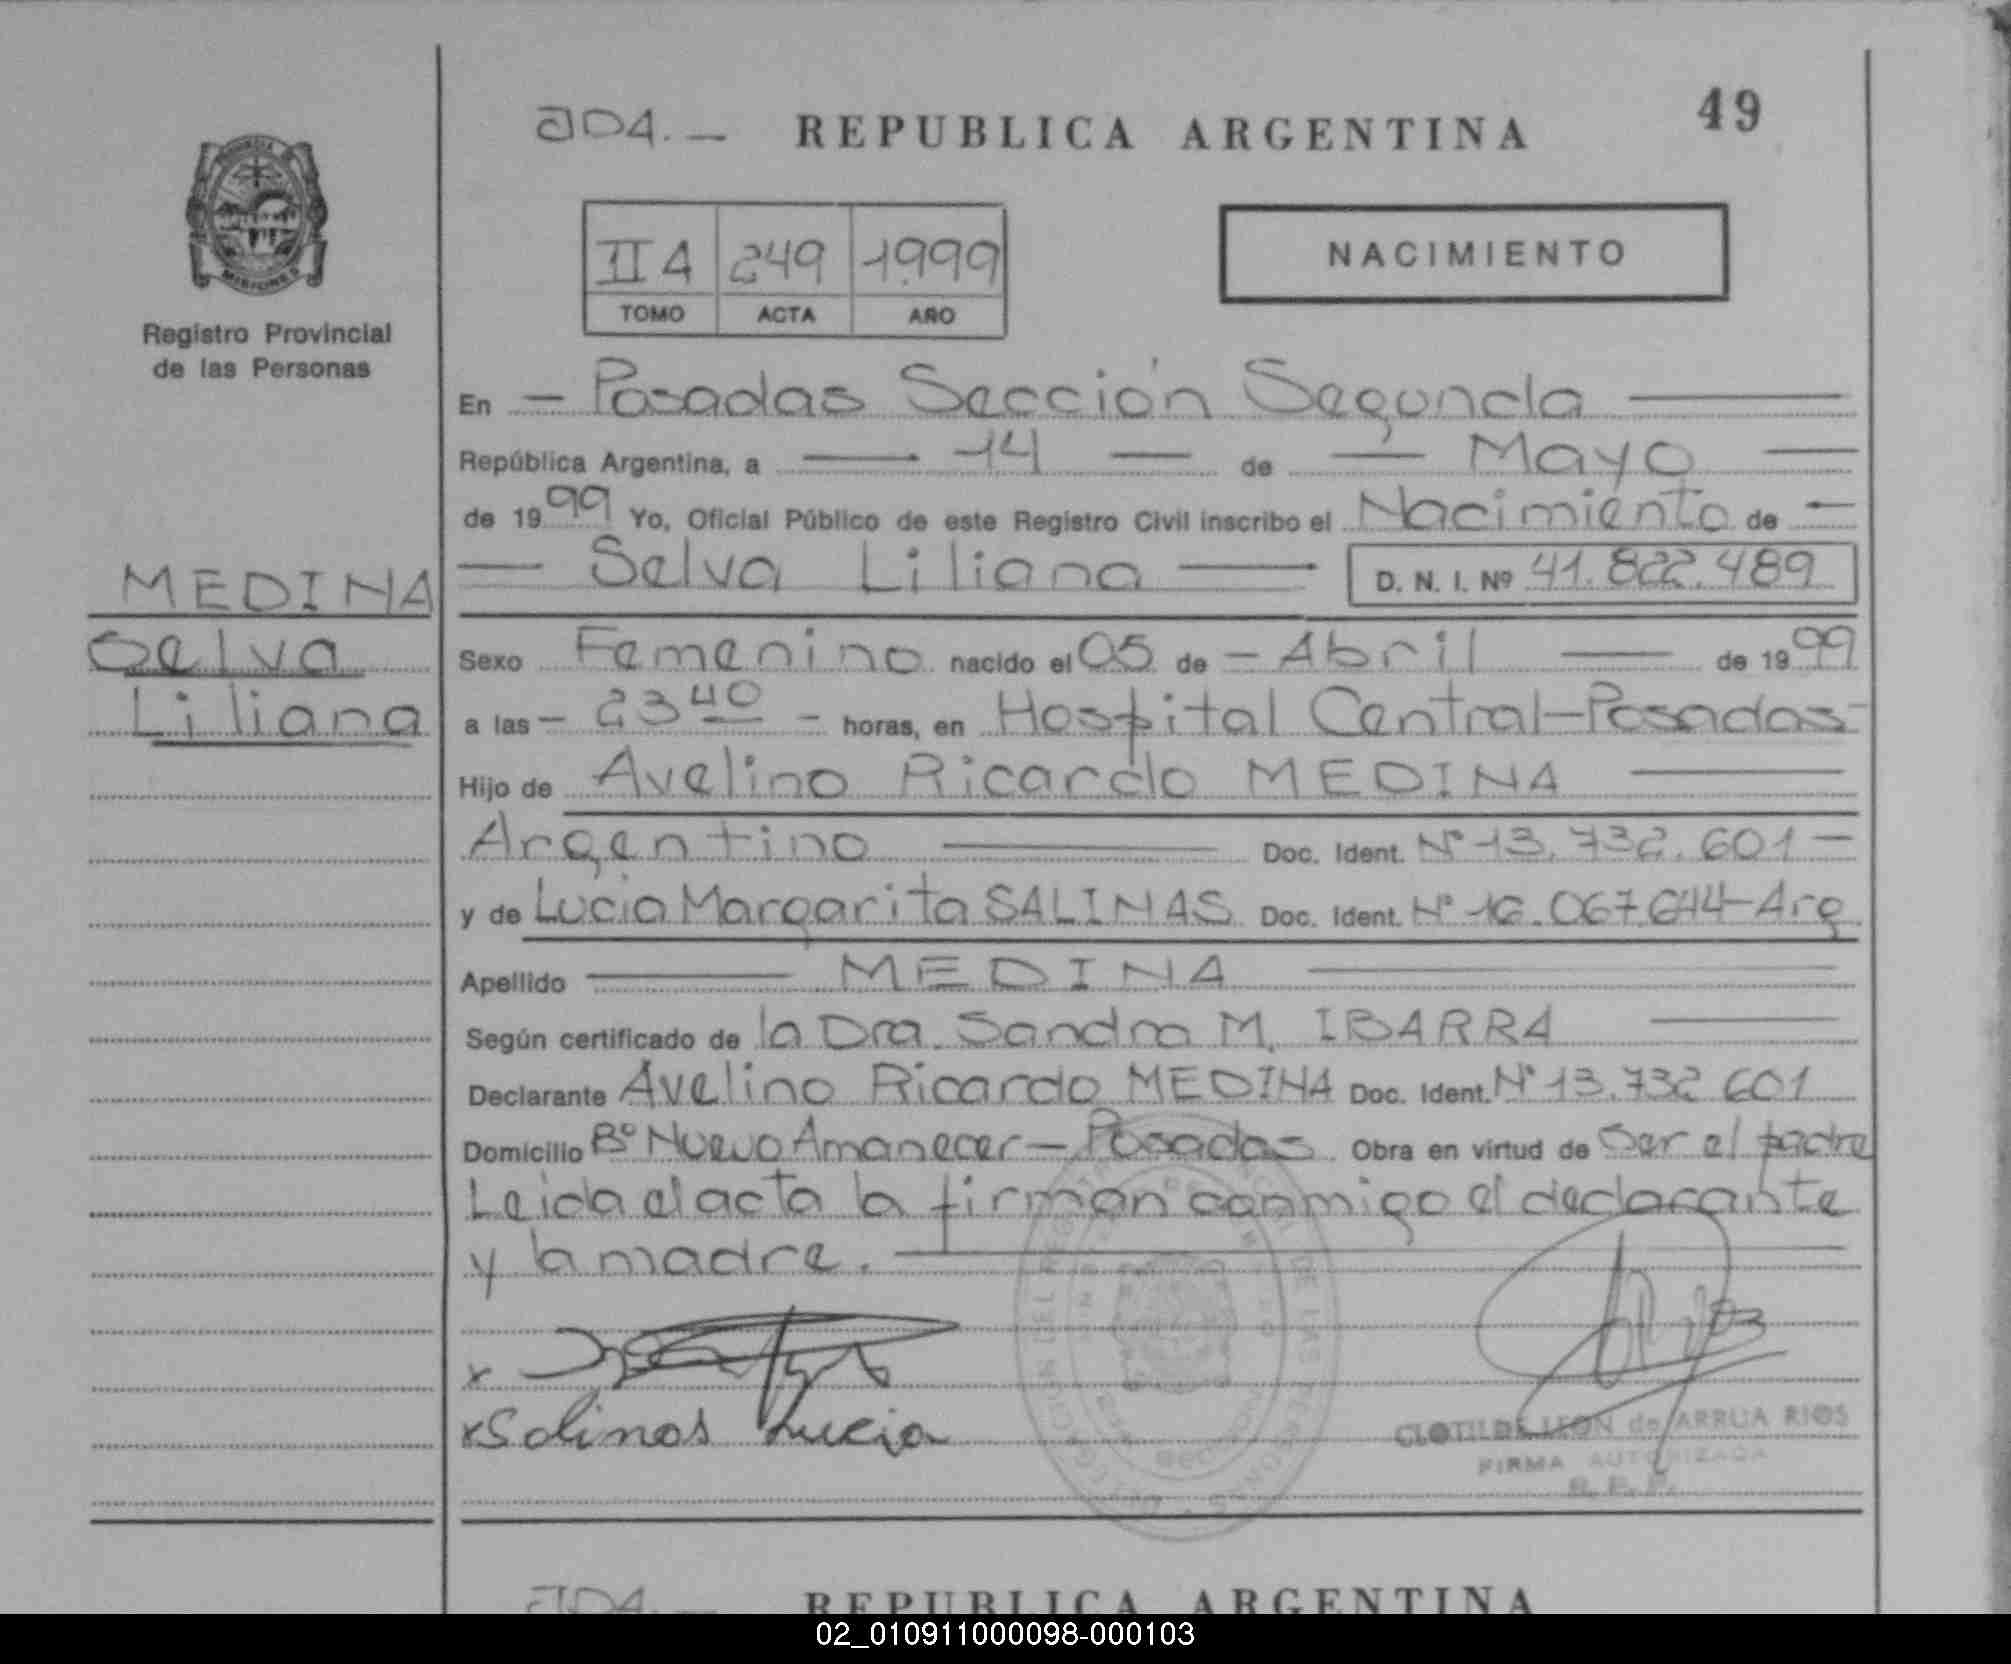 JD4.- REPUBLICA ARGENTINA 49
II A 249 1999
TOMO ACTA AÑO
NACIMIENTO
MISIONES
Registro Provincial
de las Personas
En - Posadas Sección Segunda
República Argentina, a 14 de Mayo
de 1999 Yo, Oficial Público de este Registro Civil inscribo el Nacimiento de
Selva Liliana D. N. I. Nº 41.822.489
MEDINA
Selva
Liliana
Sexo Femenino nacido el 05 de - Abril de 1999
a las - 23 40 - horas, en Hospital Central-Posadas-
Hijo de Avelino Ricardo MEDINA
Argentino Doc. Ident. Nº 13.732.601-
y de Lucia Margarita SALINAS Doc. Ident. Nº 16.067.644-Arg
Apellido MEDINA
Según certificado de la Dra. Sandra M. IBARRA
Declarante Avelino Ricardo MEDINA Doc. Ident. Nº 13.732.601
Domicilio Bº Nuevo Amanecer - Posadas Obra en virtud de Ser el padre
Leida el acta la firman conmigo el declarante
y la madre.
x
x Salinas Lucia
CLOTILDE LEON de ARRUA RIOS
FIRMA AUTORIZADA
R. P. P.
REPUBLICA ARGENTINA
02_010911000098-000103